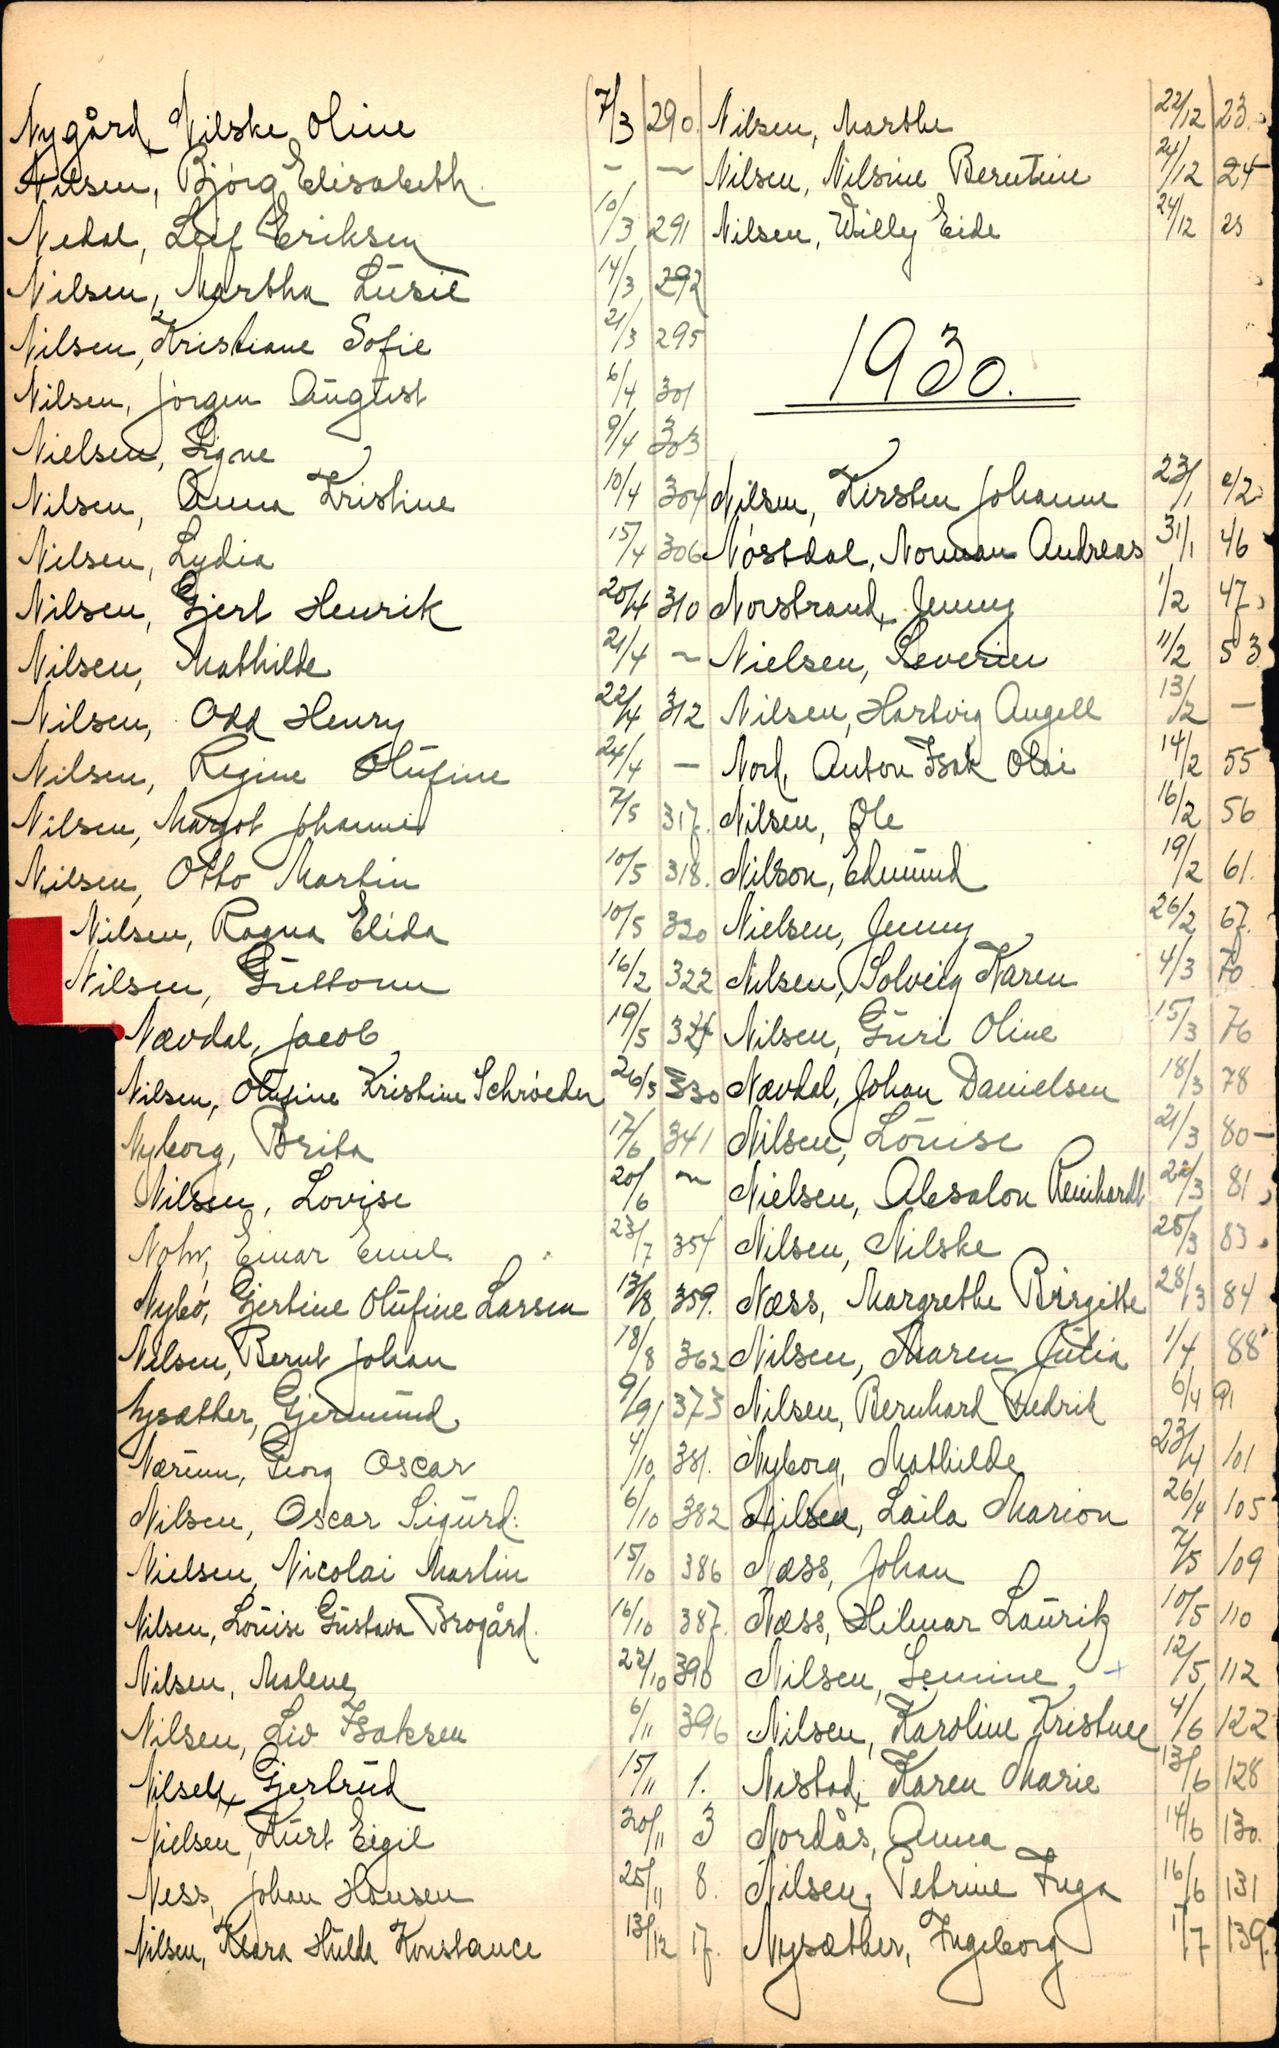 Nygård, Nilske Oline 7/3 290.
Nilsen, Bjørg Elisabeth. - -
Nedal, Leif Eriksen 10/3 291
Nilsen, Martha Lusie 14/3 292
Nilsen, Kristiane Sofie 21/3 295
Nilsen, Jørgen August 6/4 301
Nielsen, Signe 9/4 303
Nilsen, Anna Kristine 10/4 304
Nilsen, Lydia 15/4 306
Nilsen, Gjert Henrik 20/4 310
Nilsen, Mathilde 21/4 -
Nilsen, Odd Henry 22/4 312
Nilsen, Regine Olufine 24/4 -
Nilsen, Margot Johanne 7/5 317.
Nilsen, Otto Martin 10/5 318.
Nilsen, Ragna Elida 10/5 320
Nilsen, Guttorm 16/2 322
Nævdal, Jacob 19/5 324
Nilsen, Olufine Kristine Schrøeder 26/5 330
Nyborg, Brita 17/6 341
Nilsen, Lovise 20/6 -
Nohr, Einar Emil 23/7 354
Nybø, Gjertine Olufine Larsen 13/8 359.
Nilsen, Bernt Johan 18/8 362
Nysæther, Gjermund 9/9 373
Nærum, Georg Oscar 4/10 381.
Nilsen, Oscar Sigurd. 6/10 382
Nielsen, Nicolai Martin 15/10 386
Nilsen, Louise Gustava Brogård. 16/10 387.
Nilsen, Malene 22/10 390
Nilsen, Liv Isaksen 6/11 396
Nilsen, Gjertrud 15/11 1.
Nielsen, Kurt Eigil 20/11 3
Ness, Johan Hansen 25/11 8.
Nilsen, Klara Hulda Konstance 13/12 17.
Nilsen, Marthe 22/12 23.
Nilsen, Nilsine Berntine 24/12 24
Nilsen, Willy Eide 24/12 25
1930.
Nilsen, Kirsten Johanne 23/1 42
Nøstdal, Norman Andreas 31/1 46
Norstrand, Jenny 1/2 47
Nielsen, Severin 11/2 53.
Nilsen, Hartvig Angell 13/2 -
Nord, Anton Isak Olai 14/2 55
Nilsen, Ole 16/2 56
Nilson, Edmund 19/2 61.
Nielsen, Jenny 26/2 67.
Nilsen, Solveig Karen 4/3 70.
Nilsen, Guri Oline 15/3 76
Nævdal, Johan Danielsen 18/3 78
Nilsen, Louise 21/3 80-
Nielsen, Absalon Reinhardt 22/3 81
Nilsen, Nilske 25/3 83.
Næss, Margrethe Birgitte 28/3 84
Nilsen, Maren Julia 1/4 88
Nilsen, Bernhard Fredrik 6/4 91
Nyborg, Mathilde 23/4 101
Nilsen, Laila Marion 26/4 105
Næss, Johan 7/5 109
Næss, Hilmar Lauritz 10/5 110
Nilsen, Semine 12/5 112
Nilsen, Karoline Kristine 4/6 122
Nistad, Karen Marie 13/6 128
Nordås, Anna 14/6 130.
Nilsen, Petrine Inga 16/6 131
Nysæther, Ingeborg 1/7 139.